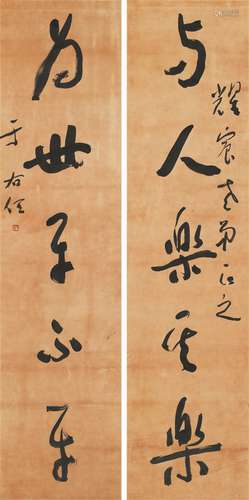 与人樂其樂
耀宸老弟正之
為世平不平
于右任